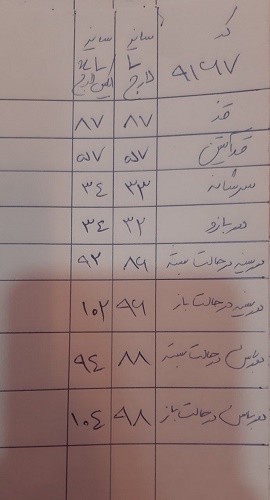 کد ۹۱۶۷ سایز ۱ لارج سایز ۲ ایکس لارج
قد ۸۷ ۸۷
قد آستین ۵۷ ۵۷
سرشانه ۳۳ ۳۴
دور بازو ۳۲ ۳۴
دور سینه در حالت بسته ۸۹ ۹۲
دور سینه در حالت باز ۹۶ ۱۰۲
دور باسن در حالت بسته ۸۸ ۹۴
دور باسن در حالت باز ۹۸ ۱۰۴